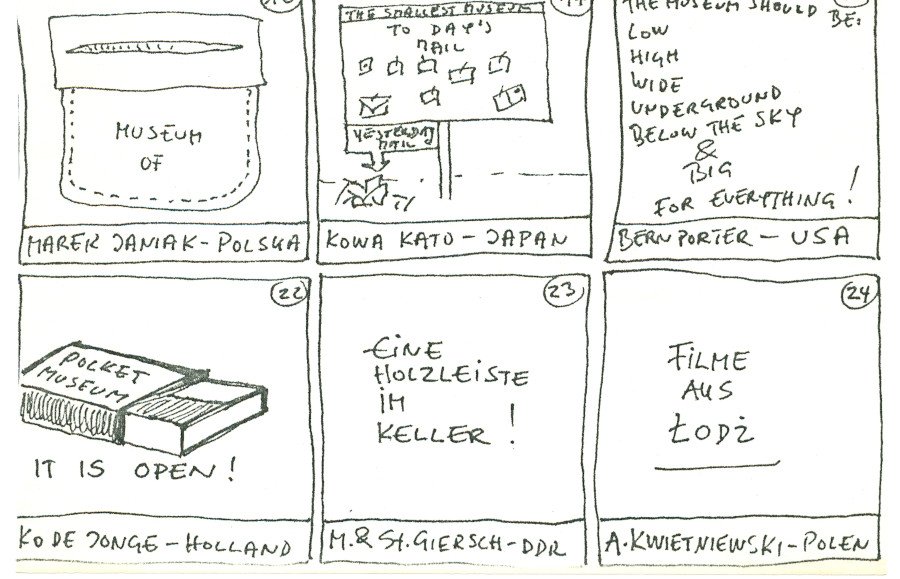 MUSEUM
OF
MAREK JANIAK-POLSKA
THE SMALLEST MUSEUM
TO DAY'S
MAIL
YESTERDAY
MAIL
KOWA KATO-JAPAN
THE MUSEUM SHOULD
BE:
LOW
HIGH
WIDE
UNDERGROUND
BELOW THE SKY
&
BIG
FOR EVERYTHING!
BERN PORTER-USA
22
POCKET
MUSEUM
IT IS OPEN!
KO DE JONGE-HOLLAND
23
EINE
HOLZLEISTE
IM
KELLER!
M.& St. GIERSCH-DDR
24
FILME
AUS
ŁODŻ
A.KWIETNIEWSKI-POLEN